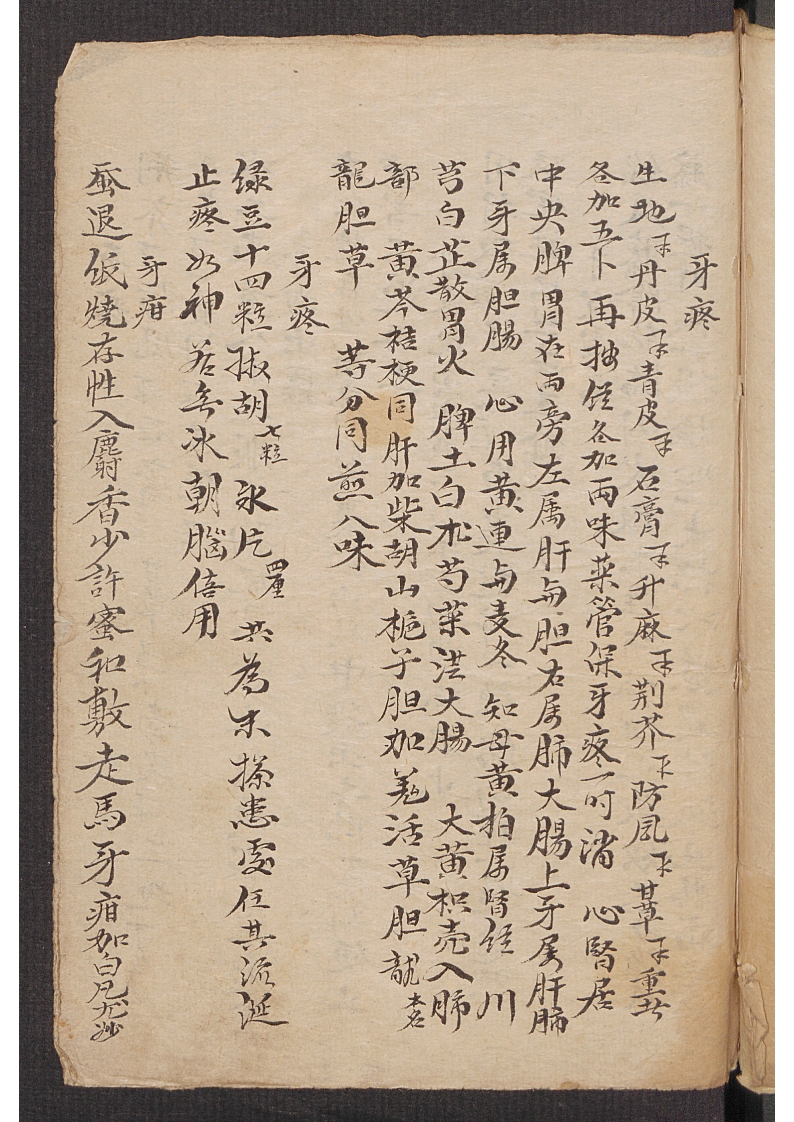 牙疼
生地 丹皮 青皮 石膏 升麻 荆芥 防風 甘草 重者
各加五卜再按経各加兩味薬管保牙疼一时消 心腎居
中央脾胃在兩旁左属肝与胆右属肺大腸上牙属肝肺
下牙属胆腸 心用黄連与麦冬 知母黄柏属腎経 川
芎白芷散胃火 脾土白朮芍薬洪大腸 大黄枳壳入肺
部 黄芩桔梗同肝加柴胡山栀子胆加羗活草胆龍
龍胆草 等分同煎八味
牙疼
绿豆十四粒椒胡七粒 氷片四厘 共為末搽患處任其流涎
止疼如神 若无冰朝腦倍用
牙疳
蚕退纸燒存性入麝香少許蜜和敷走馬牙疳加白凡尤妙